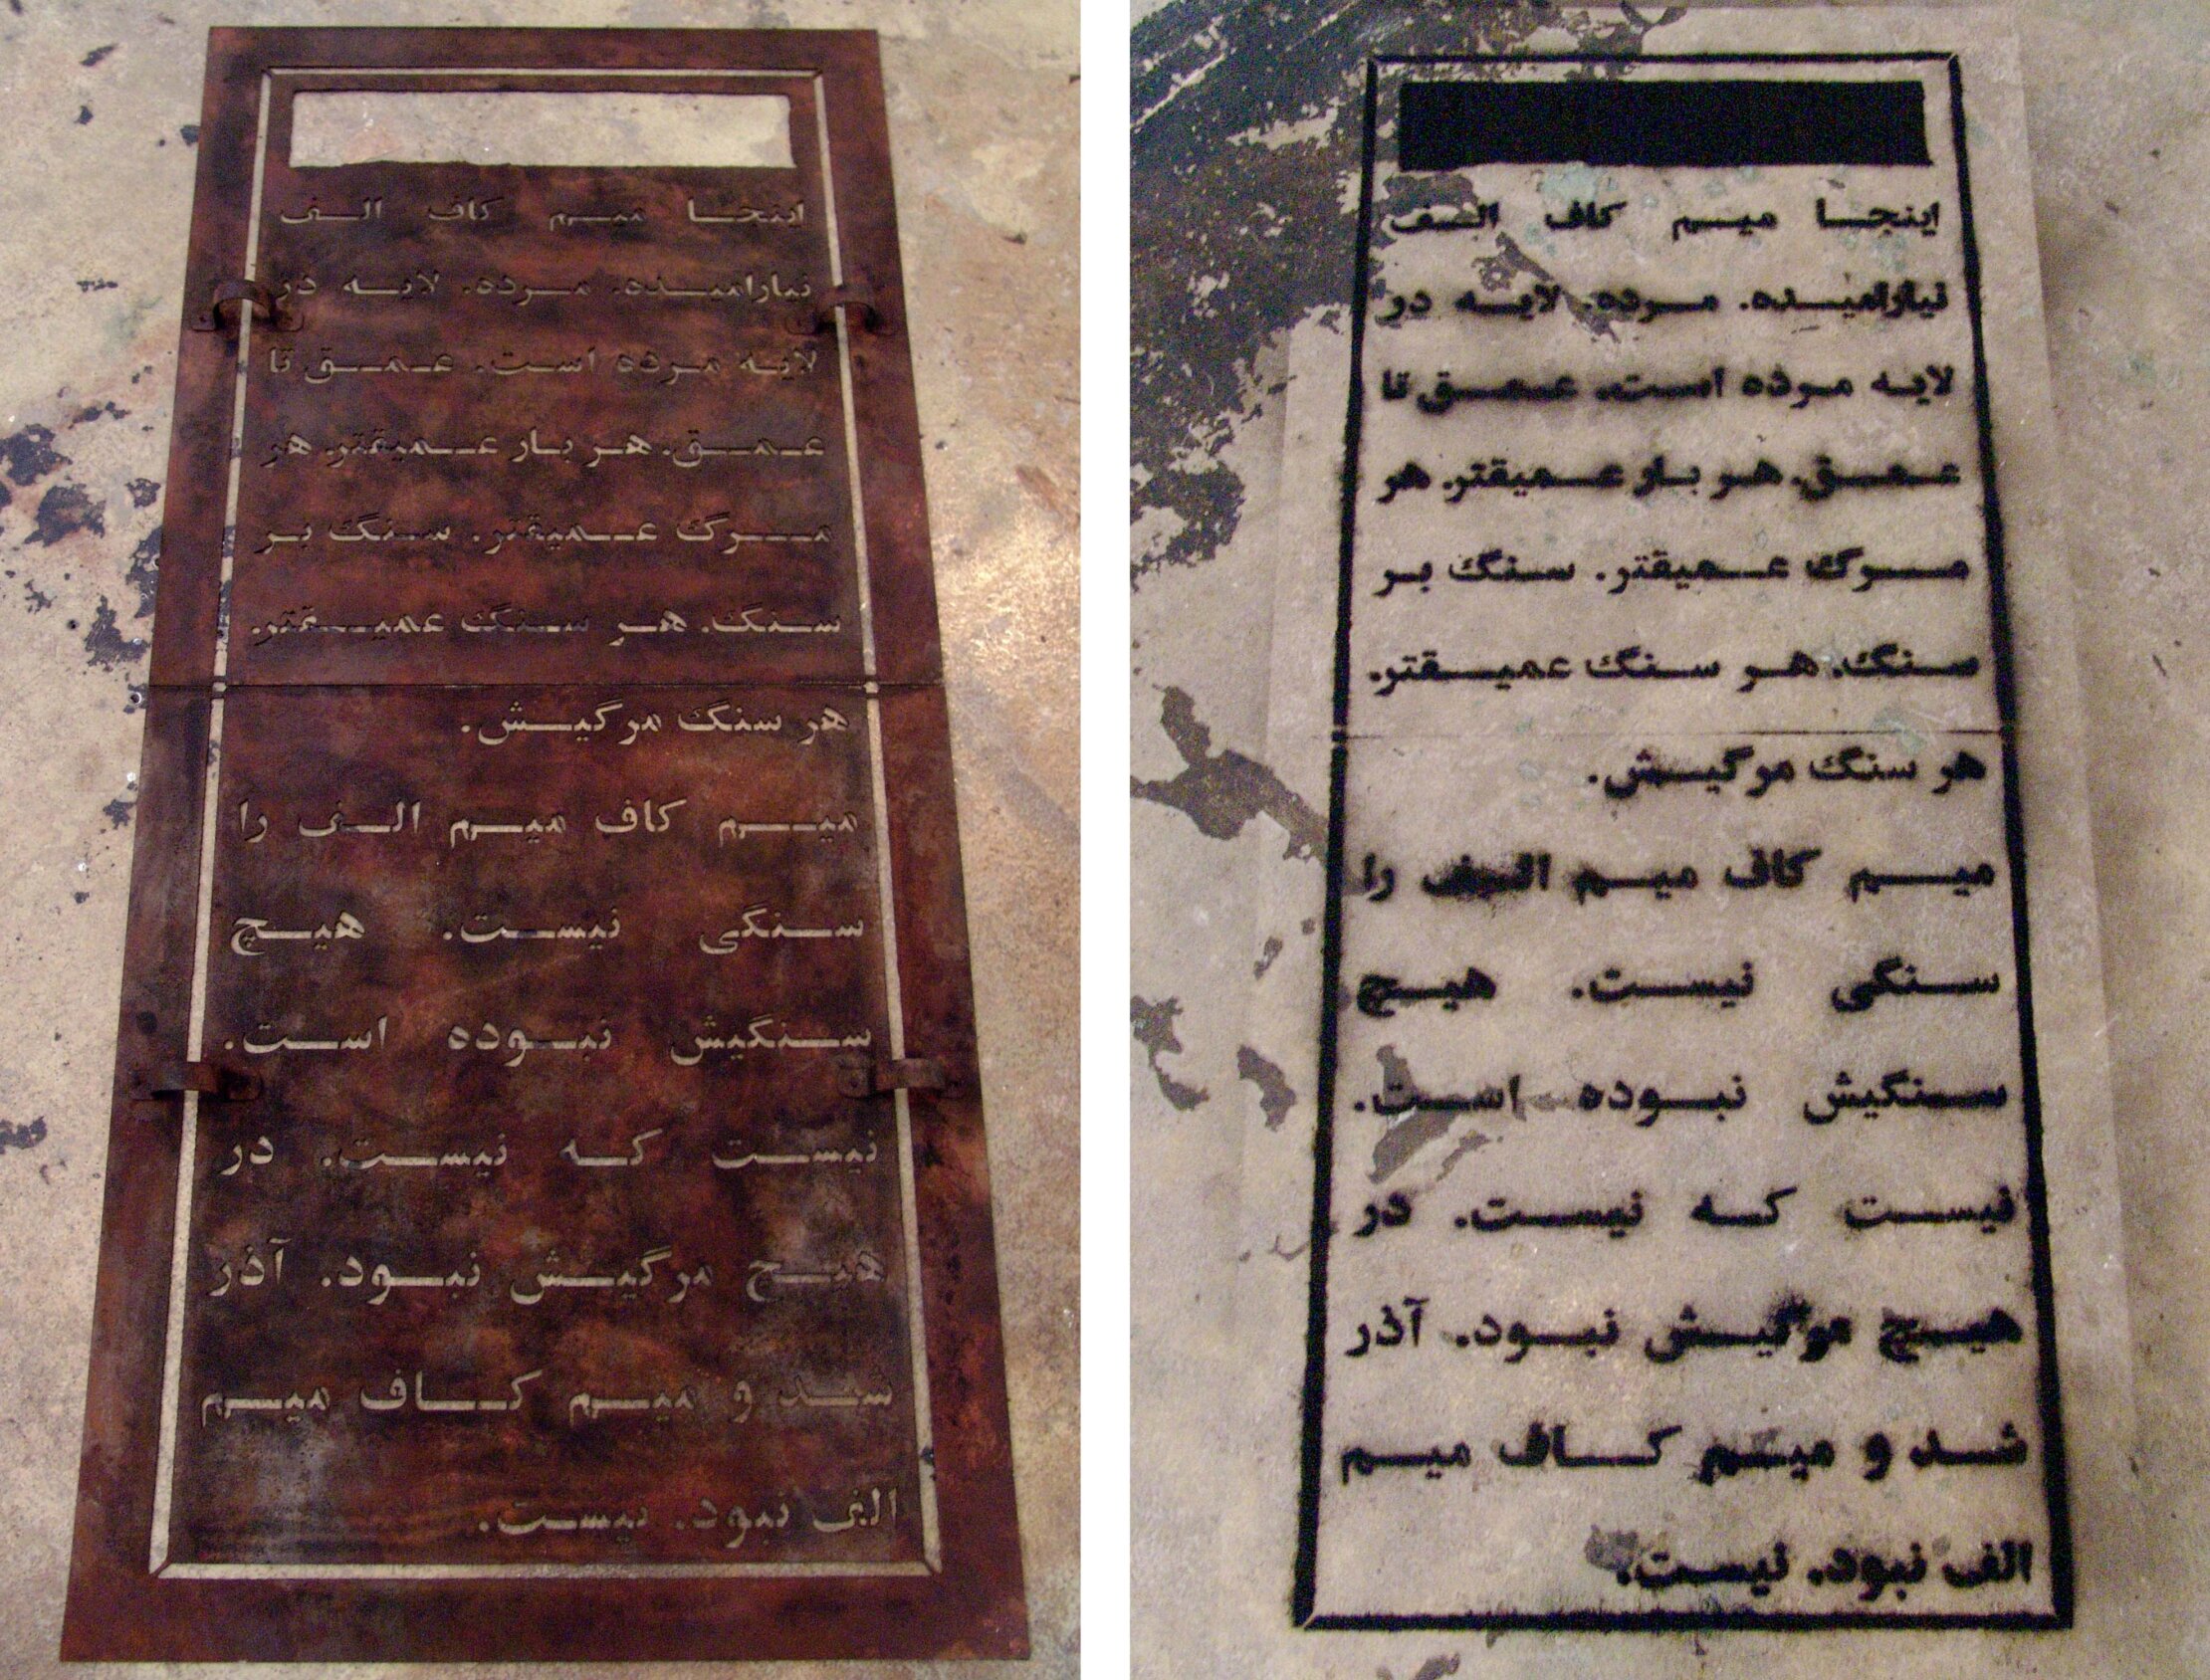 اینجا میم کاف الف
نیارامیده. مرده. لایه در
لایه مرده است. عمق تا
عمق. هر بار عمیقتر. هر
مرگ عمیقتر. سنگ بر
سنگ. هر سنگ عمیقتر.
هر سنگ مرگیش.
میم کاف میم الف را
سنگی نیست. هیچ
سنگیش نبوده است.
نیست که نیست. در
هیچ مرگیش نبود. آذر
شد و میم کاف میم
الف نبود. نیست.
اینجا میم کاف الف
نیارامیده. مرده. لایه در
لایه مرده است. عمق تا
عمق. هر بار عمیقتر. هر
مرگ عمیقتر. سنگ بر
سنگ. هر سنگ عمیقتر.
هر سنگ مرگیش.
میم کاف میم الف را
سنگی نیست. هیچ
سنگیش نبوده است.
نیست که نیست. در
هیچ مرگیش نبود. آذر
شد و میم کاف میم
الف نبود. نیست.